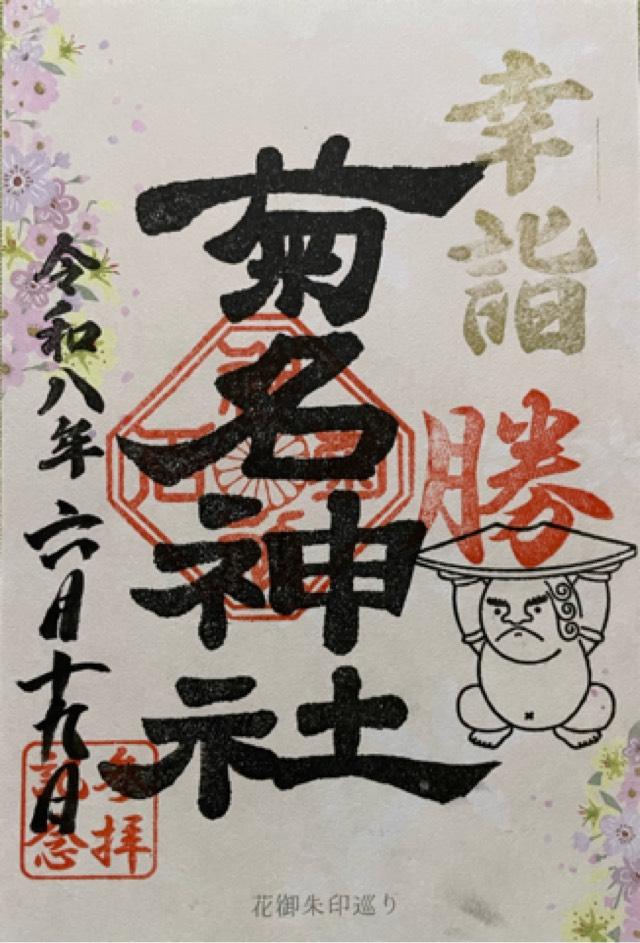 幸詣
勝
菊名神社
令和八年六月十九日
参拝
記念
花御朱印巡り